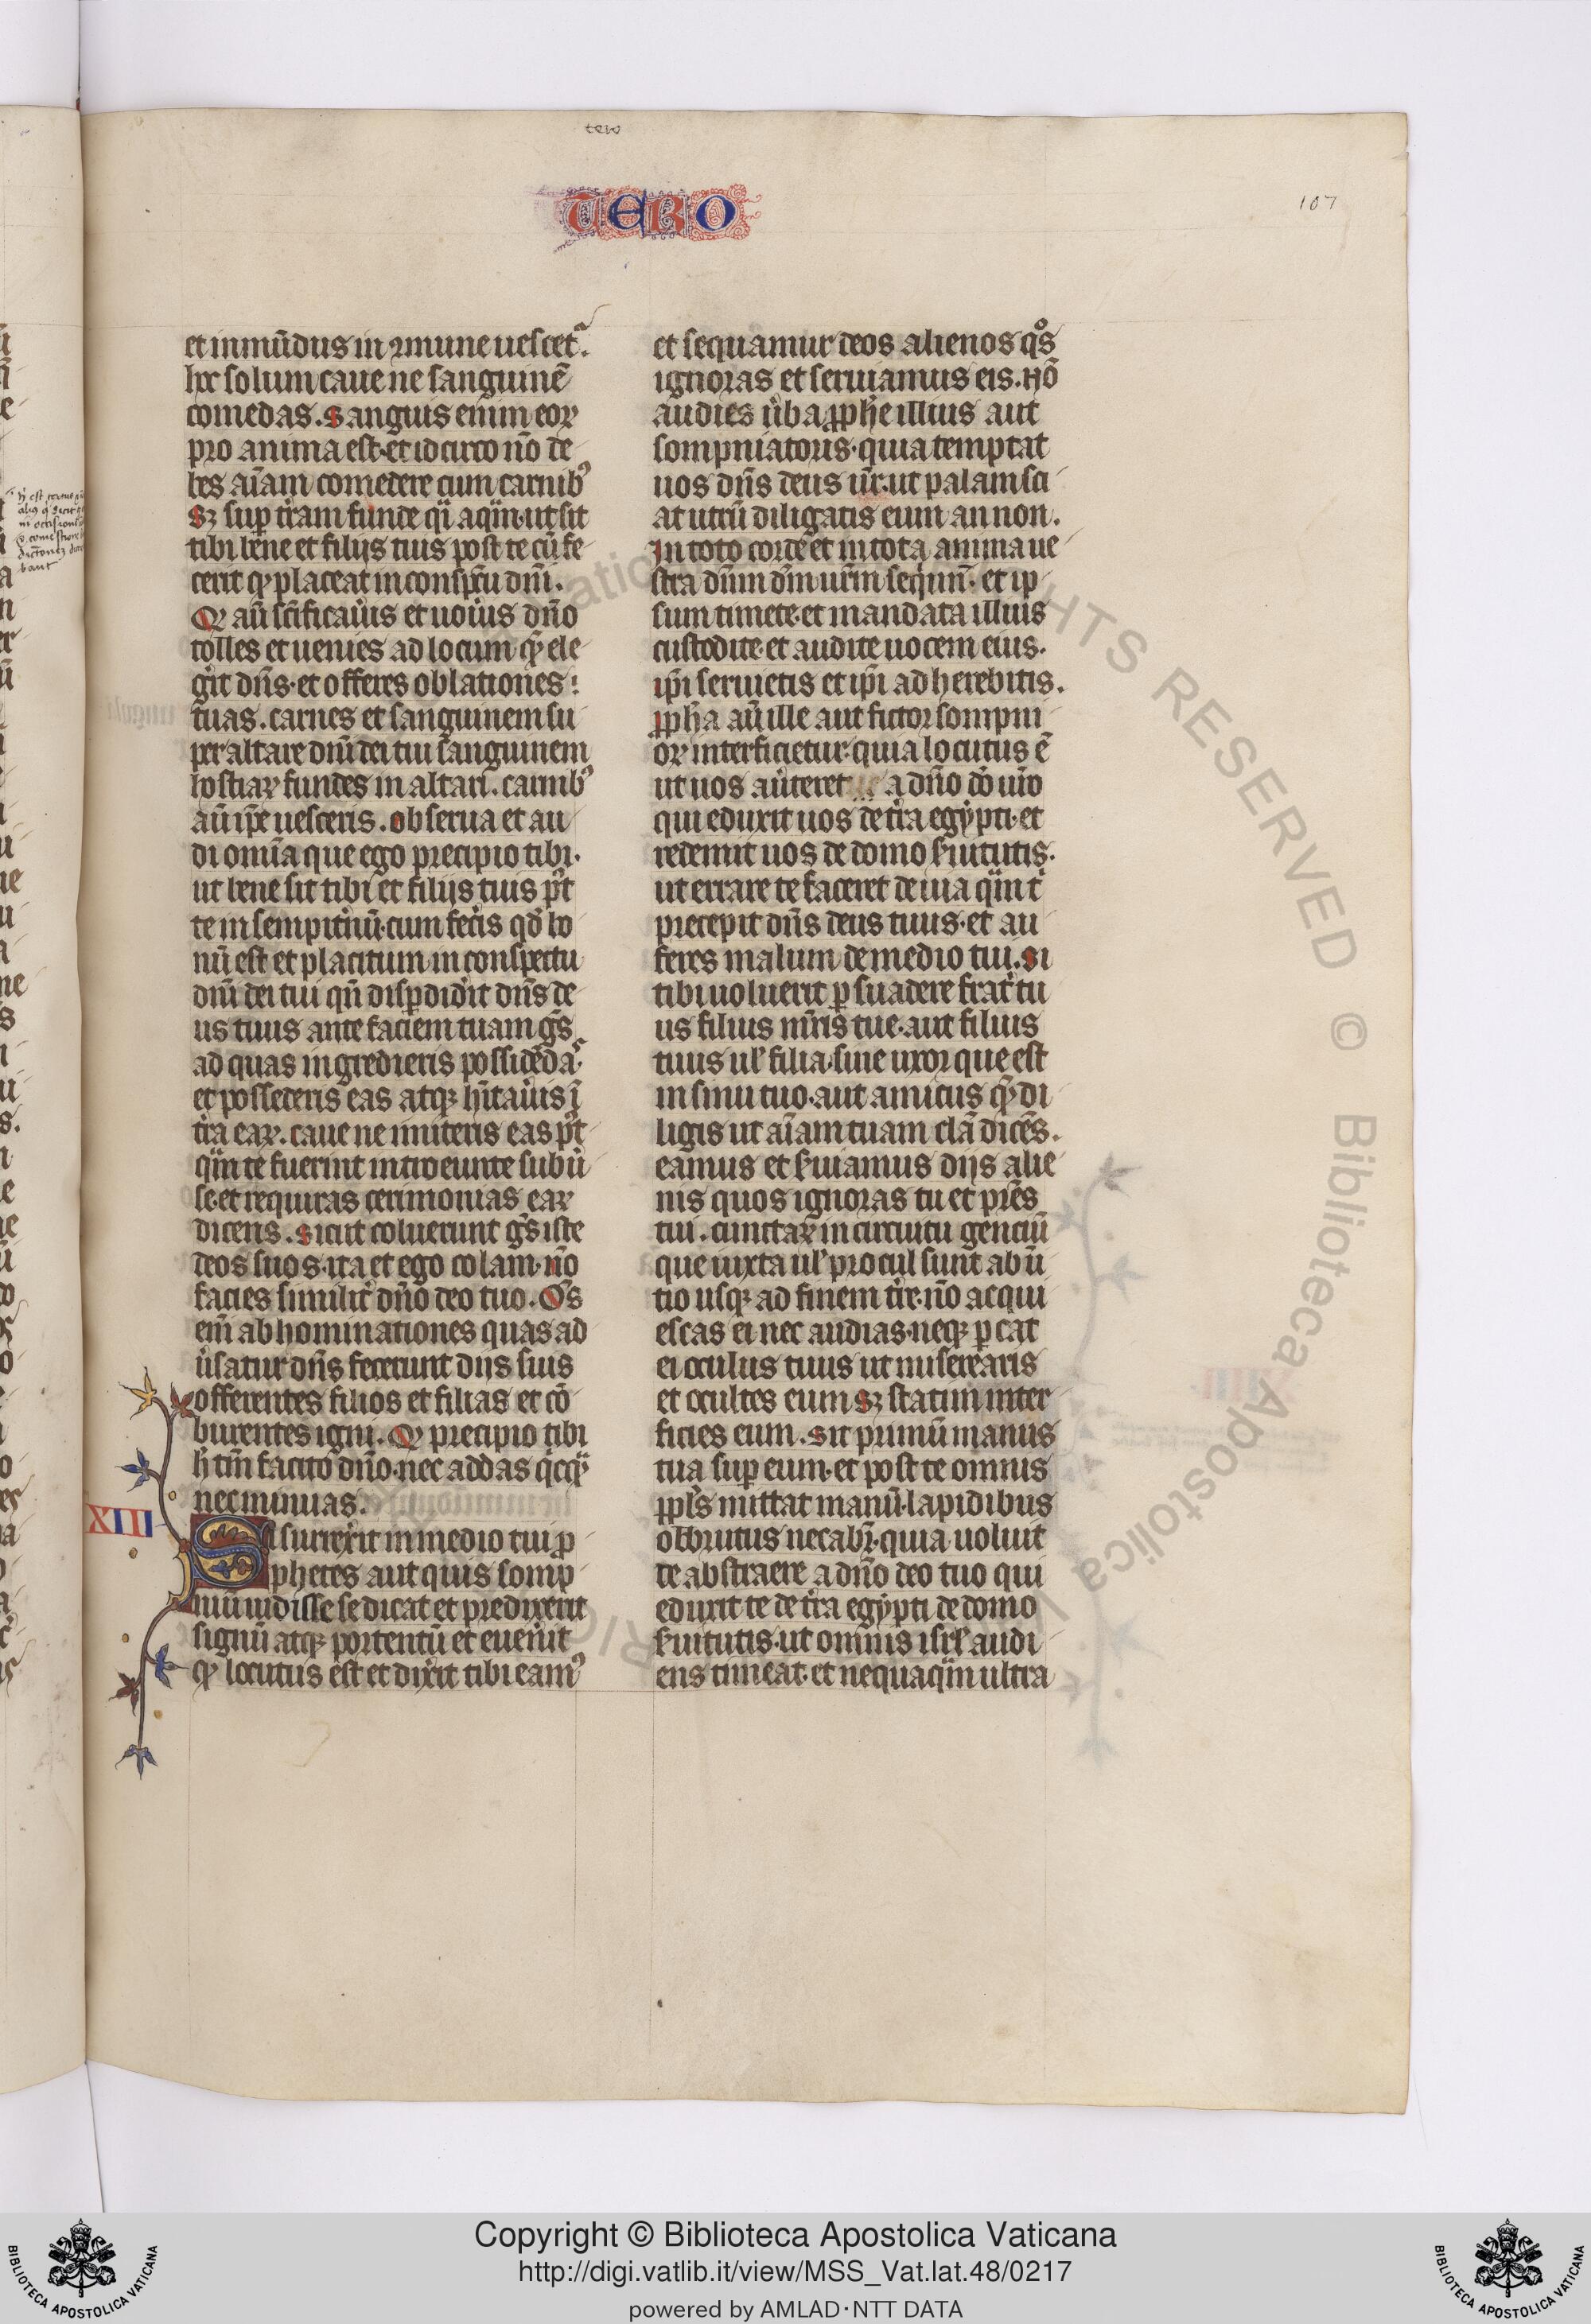 tero
TERO
107
et inmūdus in ꝯmune uescet᷑.
hoc solum caue ne sanguinē
comedas. Sanguis enim eoꝝ
pro anima est. et idcirco nō de
bes aīam comedere cum carnibꝰ
Sꝫ suꝑ t̄ram funde q̄i aq̄m. ut sit
tibi bene et filijs tuis post te cū fe
ceris qd̓ placeat in conspc̄u dn̄i.
Q̓ aū sc̄ificau̓is et uou̓is dn̄o
tolles et uenies ad locum quē ele
ger̓it dn̄s. et offeres oblationes
tuas. carnes et sanguinem su
per altare dn̄i dei tui sanguinem
hostiaꝝ fundes in altari. carnibꝰ
aū ip̄e uesceris. Obserua et au
di omīa que ego precipio tibi.
ut bene sit tibi et filijs tuis p̓t
te in sempit̓nū. cum fec̓is qd̓ bo
nū est et placitum in conspectu
dn̄i dei tui qn̄ disꝑdid̓it dn̄s de
us tuus ante faciem tuam ge̓s
ad quas ingredieris possidēda᷑s.
et possederis eas atqꝫ hītau̓is ī
t̓ra eaꝝ. caue ne imiteris eas p̓t
q̄m te fuerint introeunte subu̓
se. et requiras cerimonias eaꝝ
dicens. Sicut coluerunt ge̓s iste
deos suos. ita et ego colam. nō
facies similit̓ dn̄o deo tuo. Oēs
em̄ abhominationes quas ad
u̓satur dn̄s fecerunt dijs suis
offerentes filios et filias et cō
burentes igni. Qd̓ precipio tibi
h̓ tm̄ facito dn̄o. nec addas q̓cq̄
nec minuas.
XIII
Si surrex̓it in medio tui ꝓ
phetes aut quis somp
niū uidisse se dicat et predixerit
signū atqꝫ portentū et euen̓it
qd̓ locutus est et dix̓it tibi eamꝰ
et sequamur deos alienos qoˢ
ignoras et seruiamus eis. Nō
audies u̓ba ꝓph̄e illius aut
sompniatoris. quia temptat
uos dn̄s deus ur̄. ut palam fi
at utrū diligatis eum an non.
In toto corde et in tota anima ue
stra dn̄m dm̄ urm̄ seq̓mī. et ip
sum timete. et mandata illius
custodite. et audite uocem eius.
ip̄i seruietis et ip̄i adherebitis.
ꝓph̄a aū ille aut fictor sompni
oꝝ interficietur. quia locutus ē
ut uos au̓teret a dn̄o dō ur̄o
qui eduxit uos de t̓ra egypti. et
redemit uos de domo s̓uitutis.
ut errare te faceret de uia q̄m t̓
precepit dn̄s deus tuus. et au
feres malum de medio tui. Si
tibi uoluerit ꝑsuadere frat̓ tu
us filius mr̄is tue. aut filius
tuus ul̓ filia. siue uxor que est
in sinu tuo. aut amicus quē di
ligis ut aīam tuam clā dicēs.
eamus et s̓uiamus dijs alie
nis quos ignoras tu et pr̄es
tui. cunctaꝝ in circuitu genciū
que iuxta ul̓ procul sunt ab in̄
tio usqꝫ ad finem t̓re. nō acqui
escas ei nec audias. neqꝫ ꝑcat
ei oculus tuus ut miserearis
et occultes eum Sꝫ statim inter
ficies eum. Sit primū manus
tua suꝑ eum. et post te omnis
ppl̄s mittat manū. lapidibus
obrutus necabr̄. quia uoluit
te abstraere a dn̄o deo tuo qui
eduxit te de t̓ra egypti de domo
s̓uitutis. ut omnis isrl̓ audi
ens timeat. et nequaq̄m ultra
RIGHTS RESERVED © Biblioteca Apostolica Vaticana
Copyright © Biblioteca Apostolica Vaticana
http://digi.vatlib.it/view/MSS_Vat.lat.48/0217
powered by AMLAD·NTT DATA
BIBLIOTECA APOSTOLICA VATICANA
BIBLIOTECA APOSTOLICA VATICANA